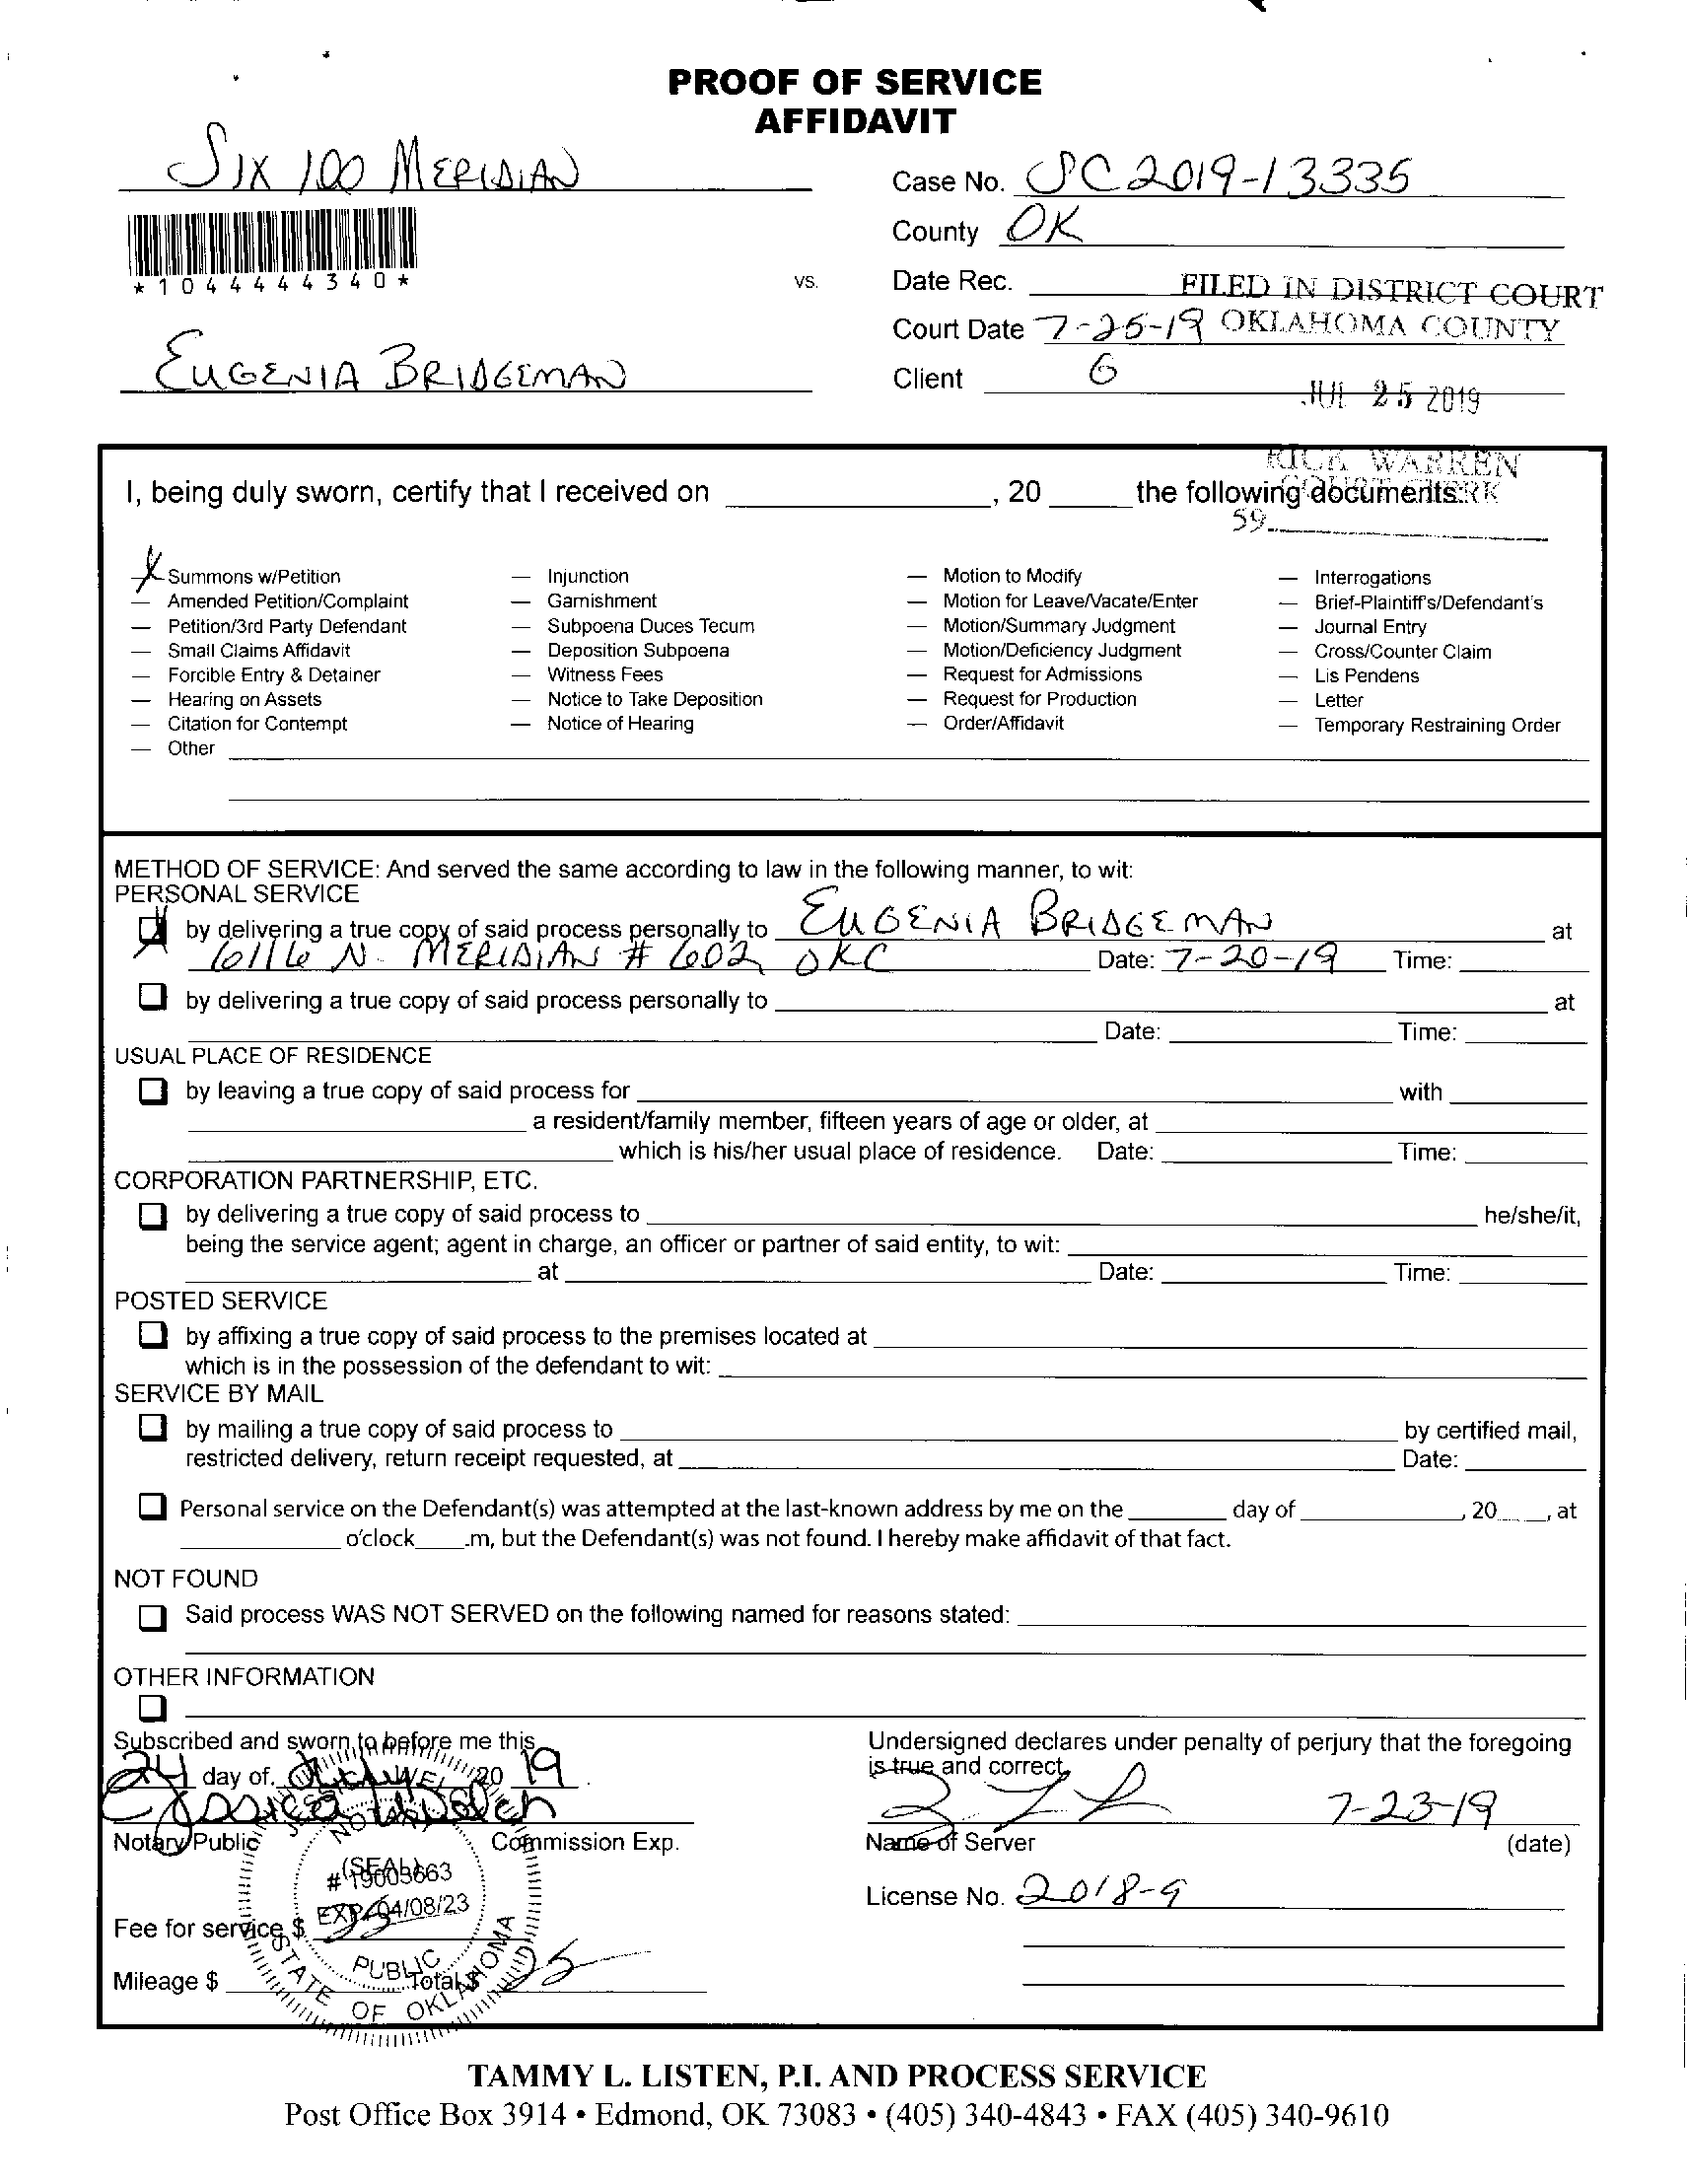 PROOF OF SERVICE
AFFIDAVIT
SIX 100 MERIDIAN
Case No. SC 2019-13335
County OK
*1044444340*
vs.
Date Rec.
FILED IN DISTRICT COURT
Court Date 7-25-19 OKLAHOMA COUNTY
EUGENIA BRIDGEMAN
Client 6
JUL 25 2019
RICK WARREN
COURT CLERK
I, being duly sworn, certify that I received on ____, 20 ____ the following documents:
59
X Summons w/Petition
— Amended Petition/Complaint
— Petition/3rd Party Defendant
— Small Claims Affidavit
— Forcible Entry & Detainer
— Hearing on Assets
— Citation for Contempt
— Other
— Injunction
— Garnishment
— Subpoena Duces Tecum
— Deposition Subpoena
— Witness Fees
— Notice to Take Deposition
— Notice of Hearing
— Motion to Modify
— Motion for Leave/Vacate/Enter
— Motion/Summary Judgment
— Motion/Deficiency Judgment
— Request for Admissions
— Request for Production
— Order/Affidavit
— Interrogations
— Brief-Plaintiff's/Defendant's
— Journal Entry
— Cross/Counter Claim
— Lis Pendens
— Letter
— Temporary Restraining Order
METHOD OF SERVICE: And served the same according to law in the following manner, to wit:
PERSONAL SERVICE
by delivering a true copy of said process personally to EUGENIA BRIDGEMAN at
6116 N. MERIDIAN # 602 OKC Date: 7-20-19 Time:
by delivering a true copy of said process personally to ____ at
Date: ____ Time:
USUAL PLACE OF RESIDENCE
by leaving a true copy of said process for ____ with
a resident/family member, fifteen years of age or older, at
which is his/her usual place of residence. Date: ____ Time:
CORPORATION PARTNERSHIP, ETC.
by delivering a true copy of said process to ____ he/she/it,
being the service agent; agent in charge, an officer or partner of said entity, to wit:
at ____ Date: ____ Time:
POSTED SERVICE
by affixing a true copy of said process to the premises located at
which is in the possession of the defendant to wit:
SERVICE BY MAIL
by mailing a true copy of said process to ____ by certified mail,
restricted delivery, return receipt requested, at ____ Date:
Personal service on the Defendant(s) was attempted at the last-known address by me on the ____ day of ____, 20____, at
____ o'clock____.m, but the Defendant(s) was not found. I hereby make affidavit of that fact.
NOT FOUND
Said process WAS NOT SERVED on the following named for reasons stated:
OTHER INFORMATION
Subscribed and sworn to before me this
24 day of July 20 19
Jessica Welch
Notary Public
Commission Exp.
(SEAL)
NOTARY
# 19003663
EXP. 04/08/23
PUBLIC
STATE OF OKLAHOMA
Fee for service $
Mileage $
Total $ 25
Undersigned declares under penalty of perjury that the foregoing
is true and correct.
7-23-19
Name of Server (date)
License No. 2018-9
TAMMY L. LISTEN, P.I. AND PROCESS SERVICE
Post Office Box 3914 • Edmond, OK 73083 • (405) 340-4843 • FAX (405) 340-9610